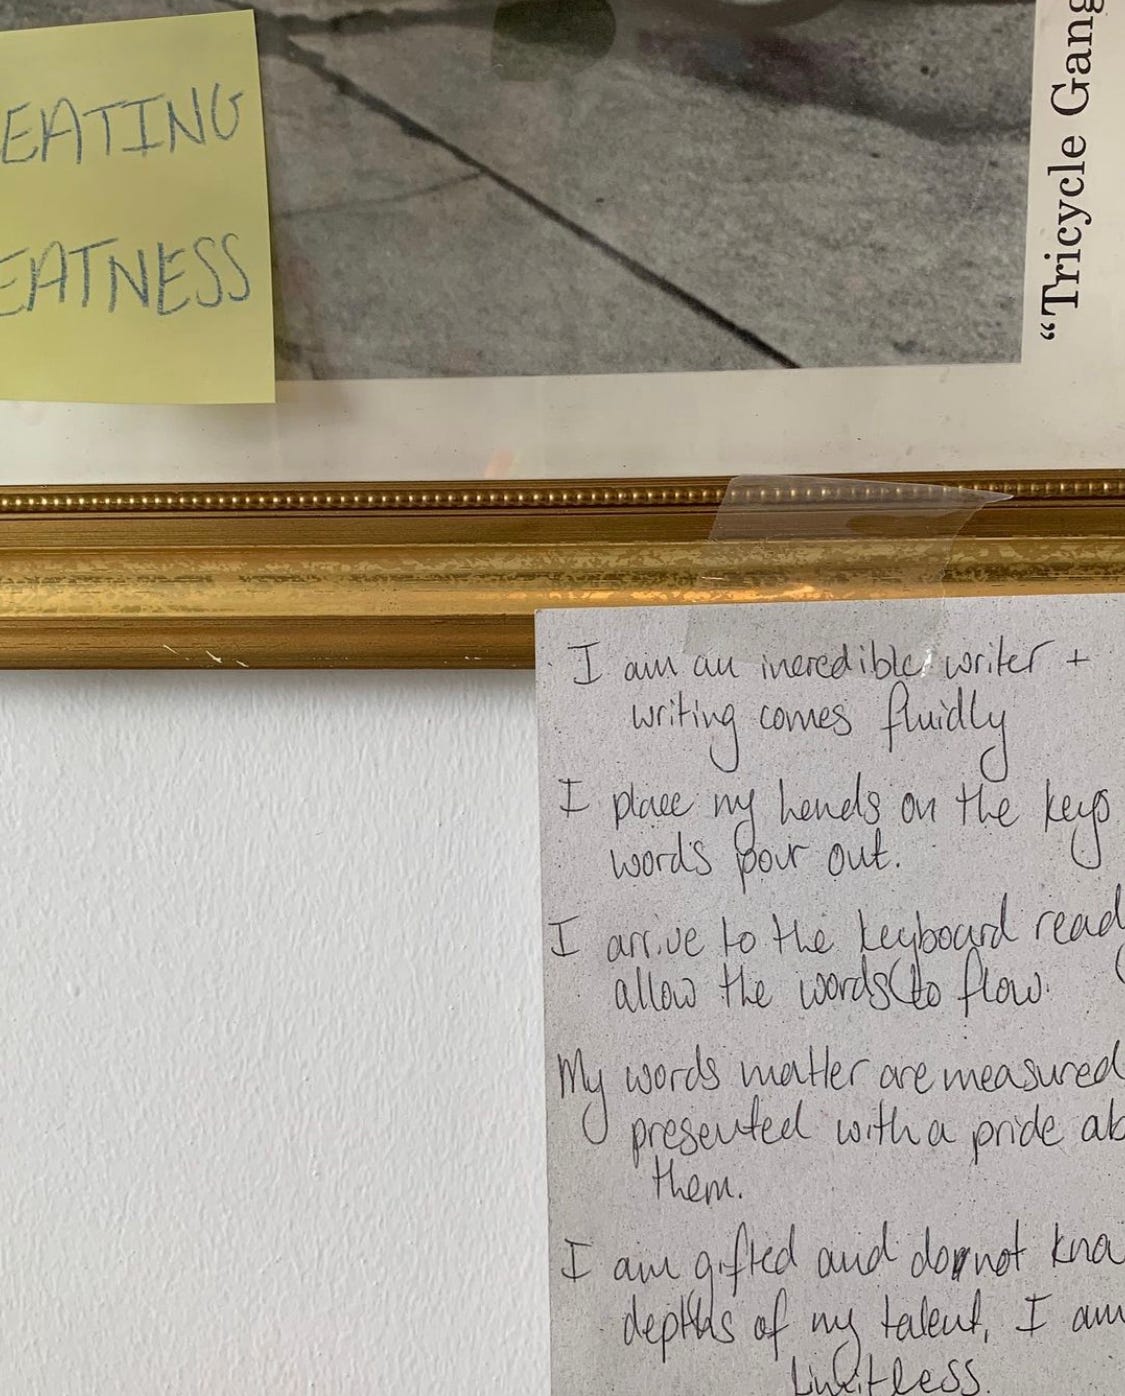 EATING
EATNESS
"Tricycle Gang
I am an incredible writer +
writing comes fluidly
I place my hands on the keys
words pour out.
I arrive to the keyboard read
allow the words to flow.
My words matter are measured
presented with a pride ab
them.
I am gifted and do not kno
depths of my talent, I am
Limitless